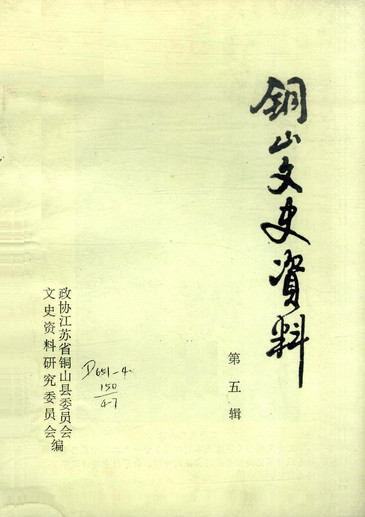 铜山文史資料
第五辑
政协江苏省铜山县委员会
文史资料研究委员会编
D651-4
150
4-7